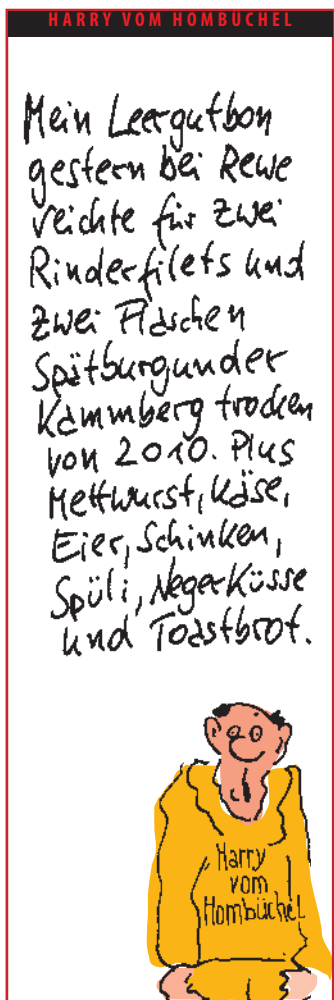 HARRY VOM HOMBÜCHEL
Mein Leergutbon
gestern bei Rewe
reichte für zwei
Rinderfilets und
zwei Flaschen
Spätburgunder
Kammberg trocken
von 2010. Plus
Mettwurst, Käse,
Eier, Schinken,
Spüli, Negerküsse
und Toastbrot.
Harry
vom
Hombüchel